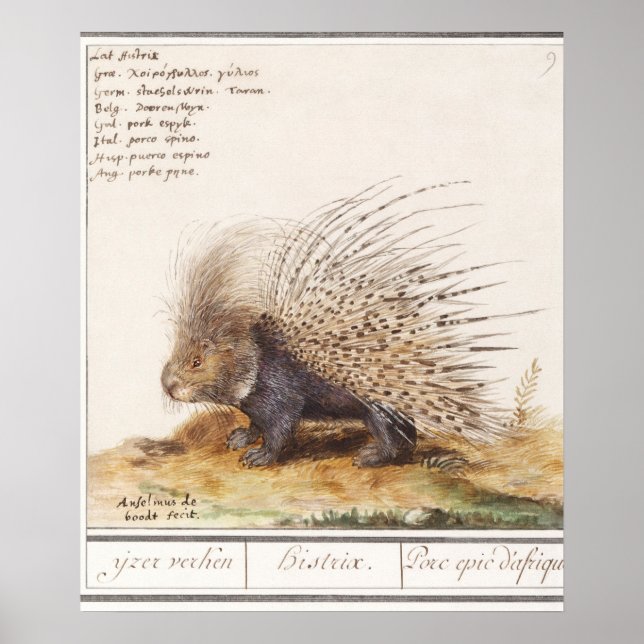 Lat Histrix
9
Græ. Χοιρόγυλλος. γύλιος
Germ. stachelswrin. Taran.
Belg. Dooren Swyn.
Gal. pork espyk.
Ital. porco spino.
Hisp. puerco espino
Ang. porke pyne.
Anselmus de
boodt fecit.
ÿzer verken
Histrix.
Porc epic d'afriqu